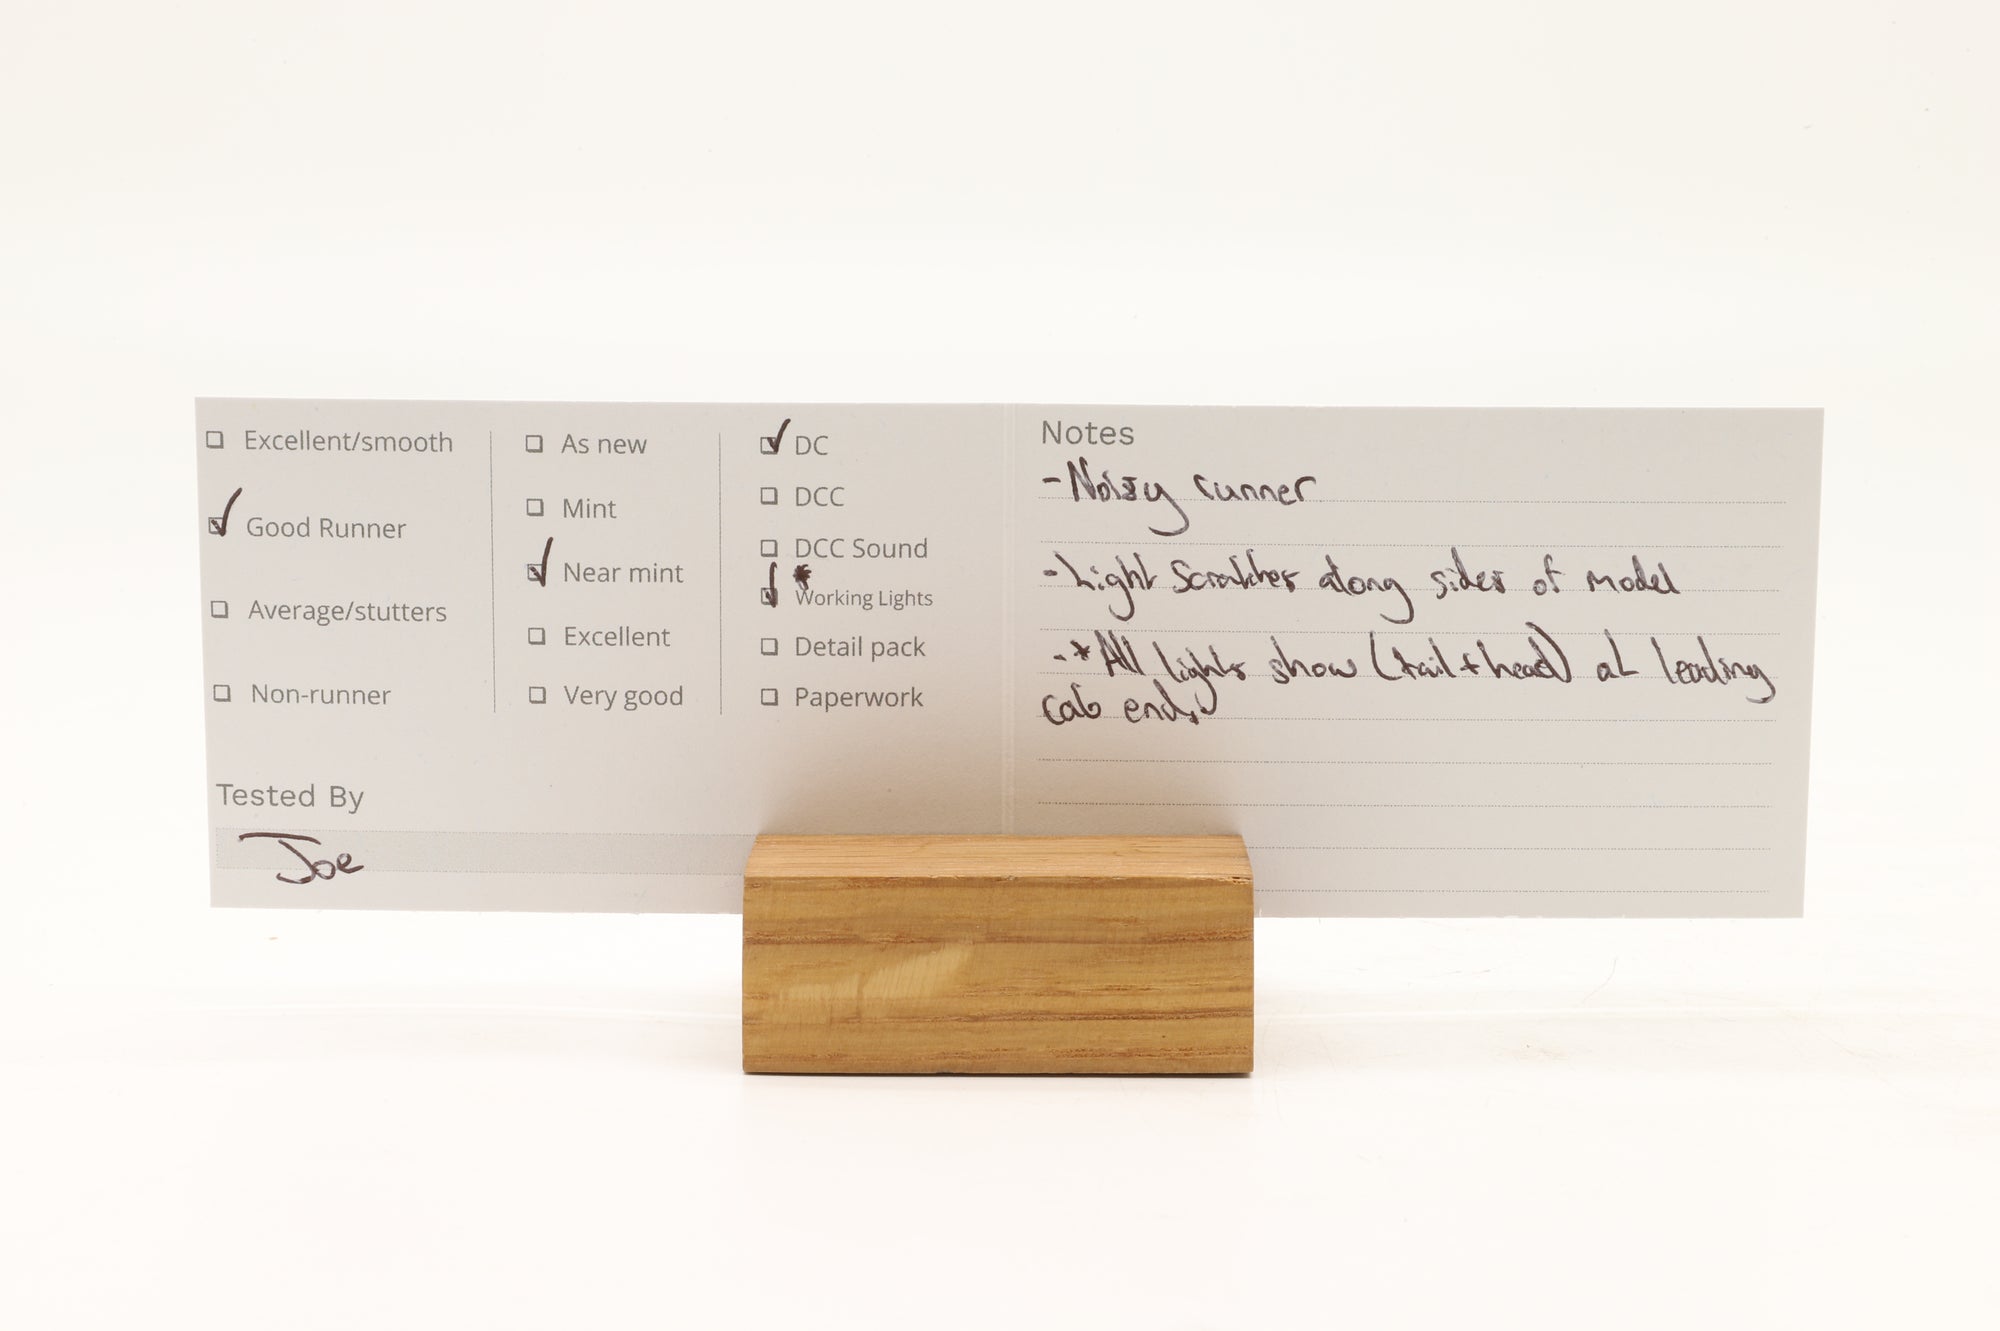 Excellent/smooth
Good Runner
Average/stutters
Non-runner
As new
Mint
Near mint
Excellent
Very good
DC
DCC
DCC Sound
*
Working Lights
Detail pack
Paperwork
Tested By
Joe
Notes
- Noisy runner
- Light Scratches along sides of model
- * All lights show (tail + head) at leading
cab end.